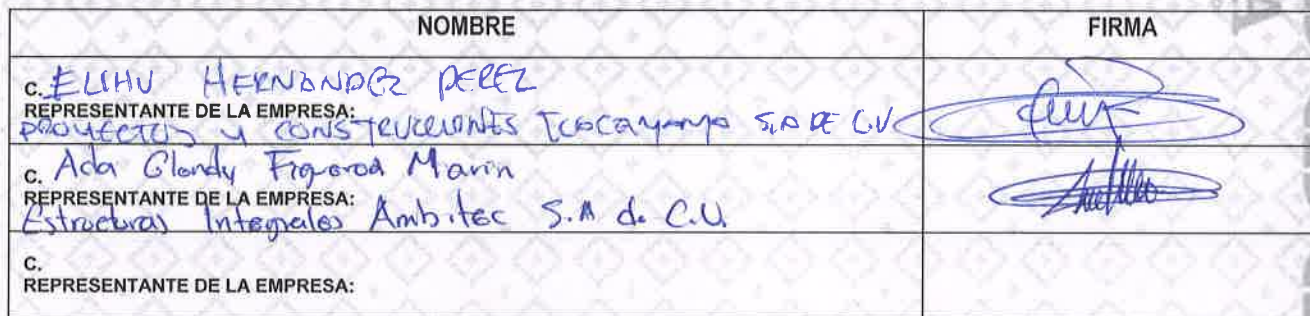 NOMBRE FIRMA
C. ELIHU HERNANDEZ PEREZ
REPRESENTANTE DE LA EMPRESA:
PROYECTOS Y CONSTRUCCIONES S.A DE C.V
C. Ada Glendy Figueroa Marin
REPRESENTANTE DE LA EMPRESA:
Estructuras Integrales Ambitec S.A de C.V.
C.
REPRESENTANTE DE LA EMPRESA: